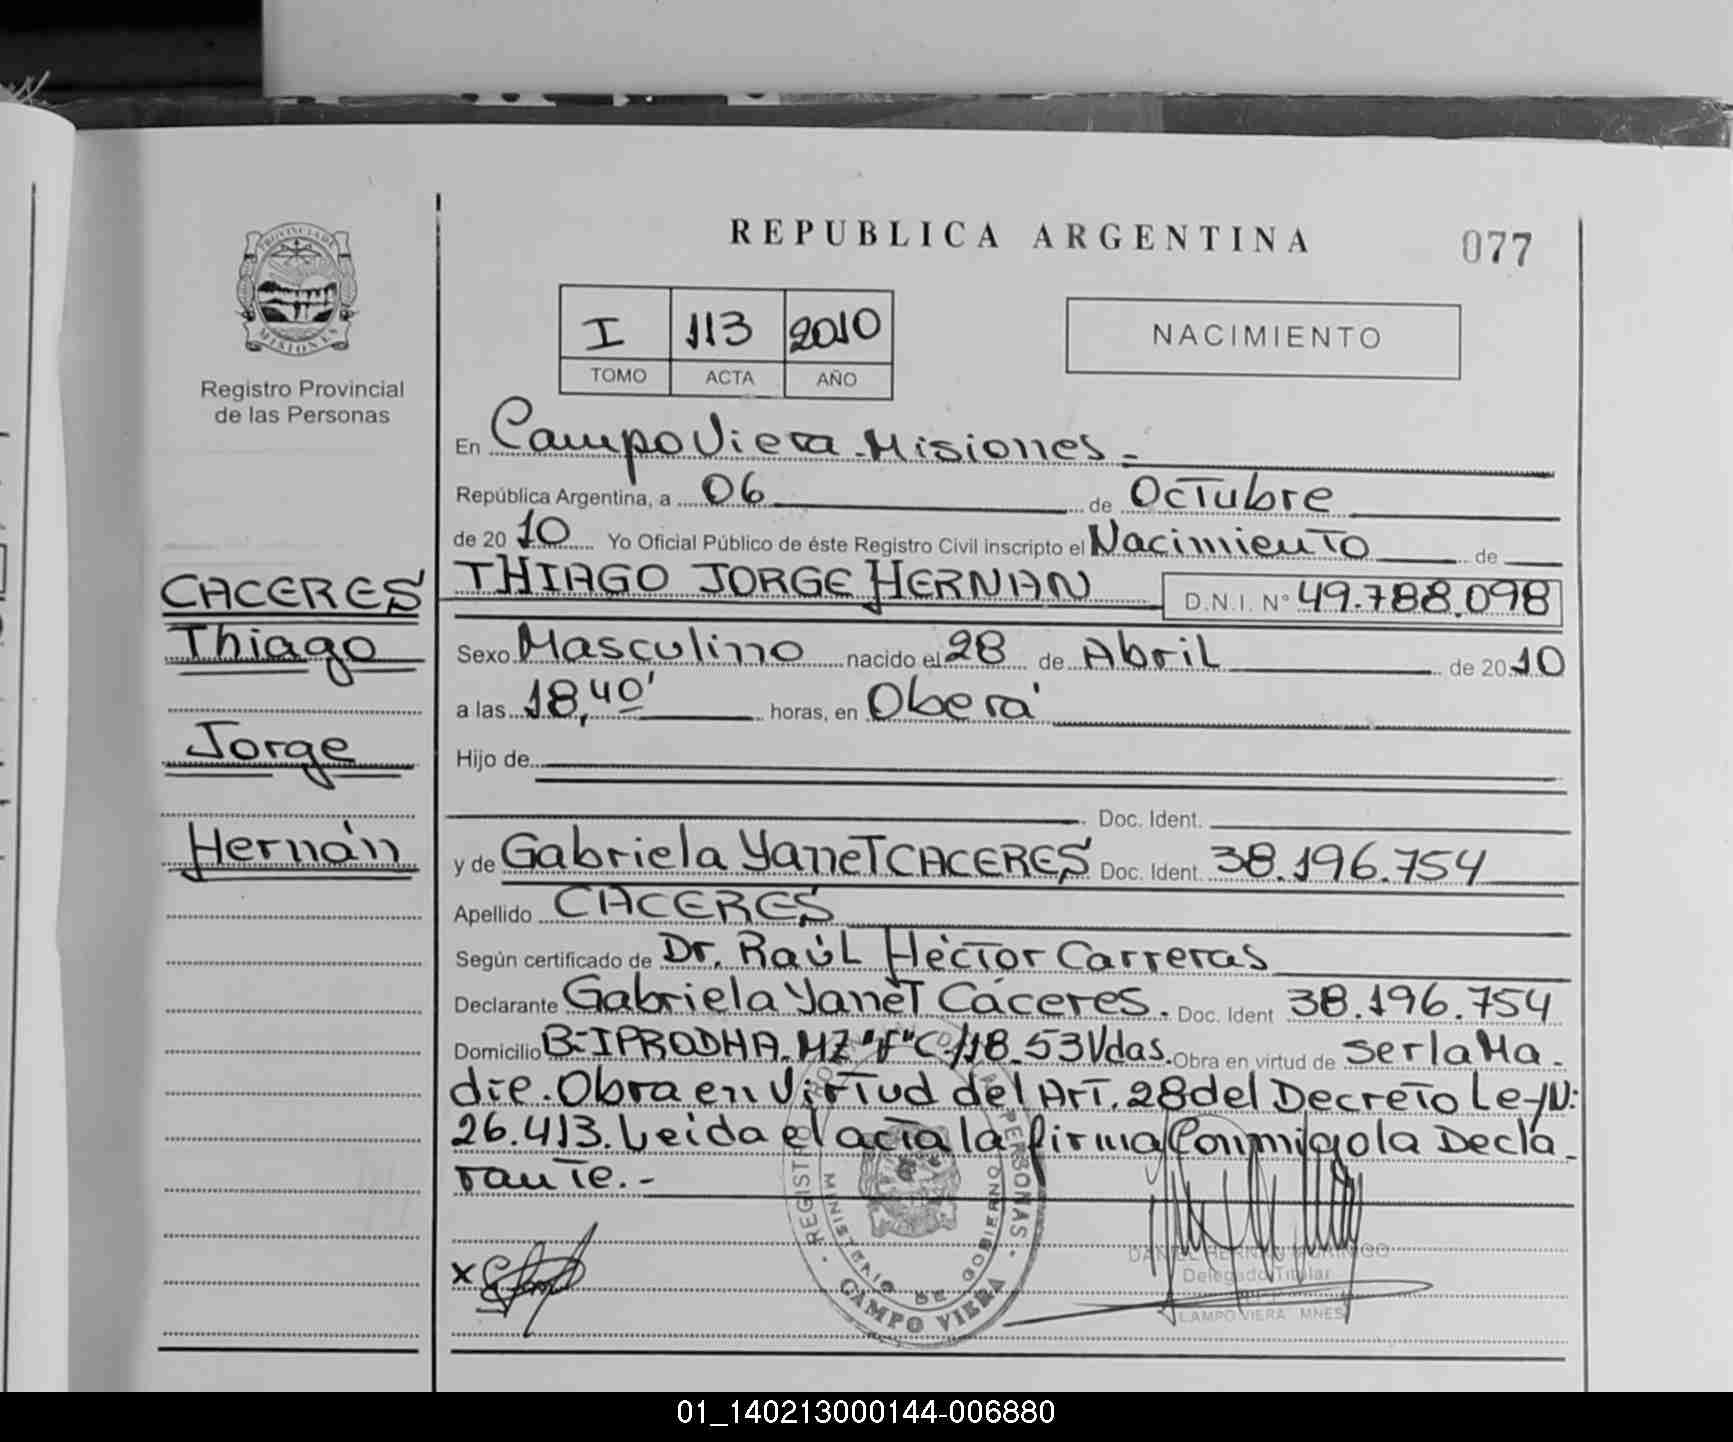 REPUBLICA ARGENTINA
077
PROVINCIA DE
MISIONES
Registro Provincial
de las Personas
I 113 2010
TOMO ACTA AÑO
NACIMIENTO
En Campo Viera - Misiones.-
República Argentina, a 06 de Octubre
de 2010 Yo Oficial Público de éste Registro Civil inscripto el Nacimiento de
THIAGO JORGE HERNAN D.N.I. N° 49.788.098
CACERES
Thiago
Jorge
Hernán
Sexo Masculino nacido el 28 de Abril de 2010
a las 18,40' horas, en Oberá
Hijo de
Doc. Ident.
y de Gabriela Yanet CACERES Doc. Ident. 38.196.754
Apellido CACERES
Según certificado de Dr. Raúl Héctor Carreras
Declarante Gabriela Yanet Cáceres. Doc. Ident 38.196.754
Domicilio B: IPRODHA. MZ "F" C/18-53 Vdas. Obra en virtud de ser la Ma-
dre. Obra en Virtud del Art. 28 del Decreto Ley N:
26.413. Leida el acta la firma Conmigo la Decla-
rante.-
X
REGISTRO PROVINCIAL DE LAS PERSONAS
MINISTERIO DE GOBIERNO
CAMPO VIERA
Delegado Titular
CAMPO VIERA MNES
01_140213000144-006880